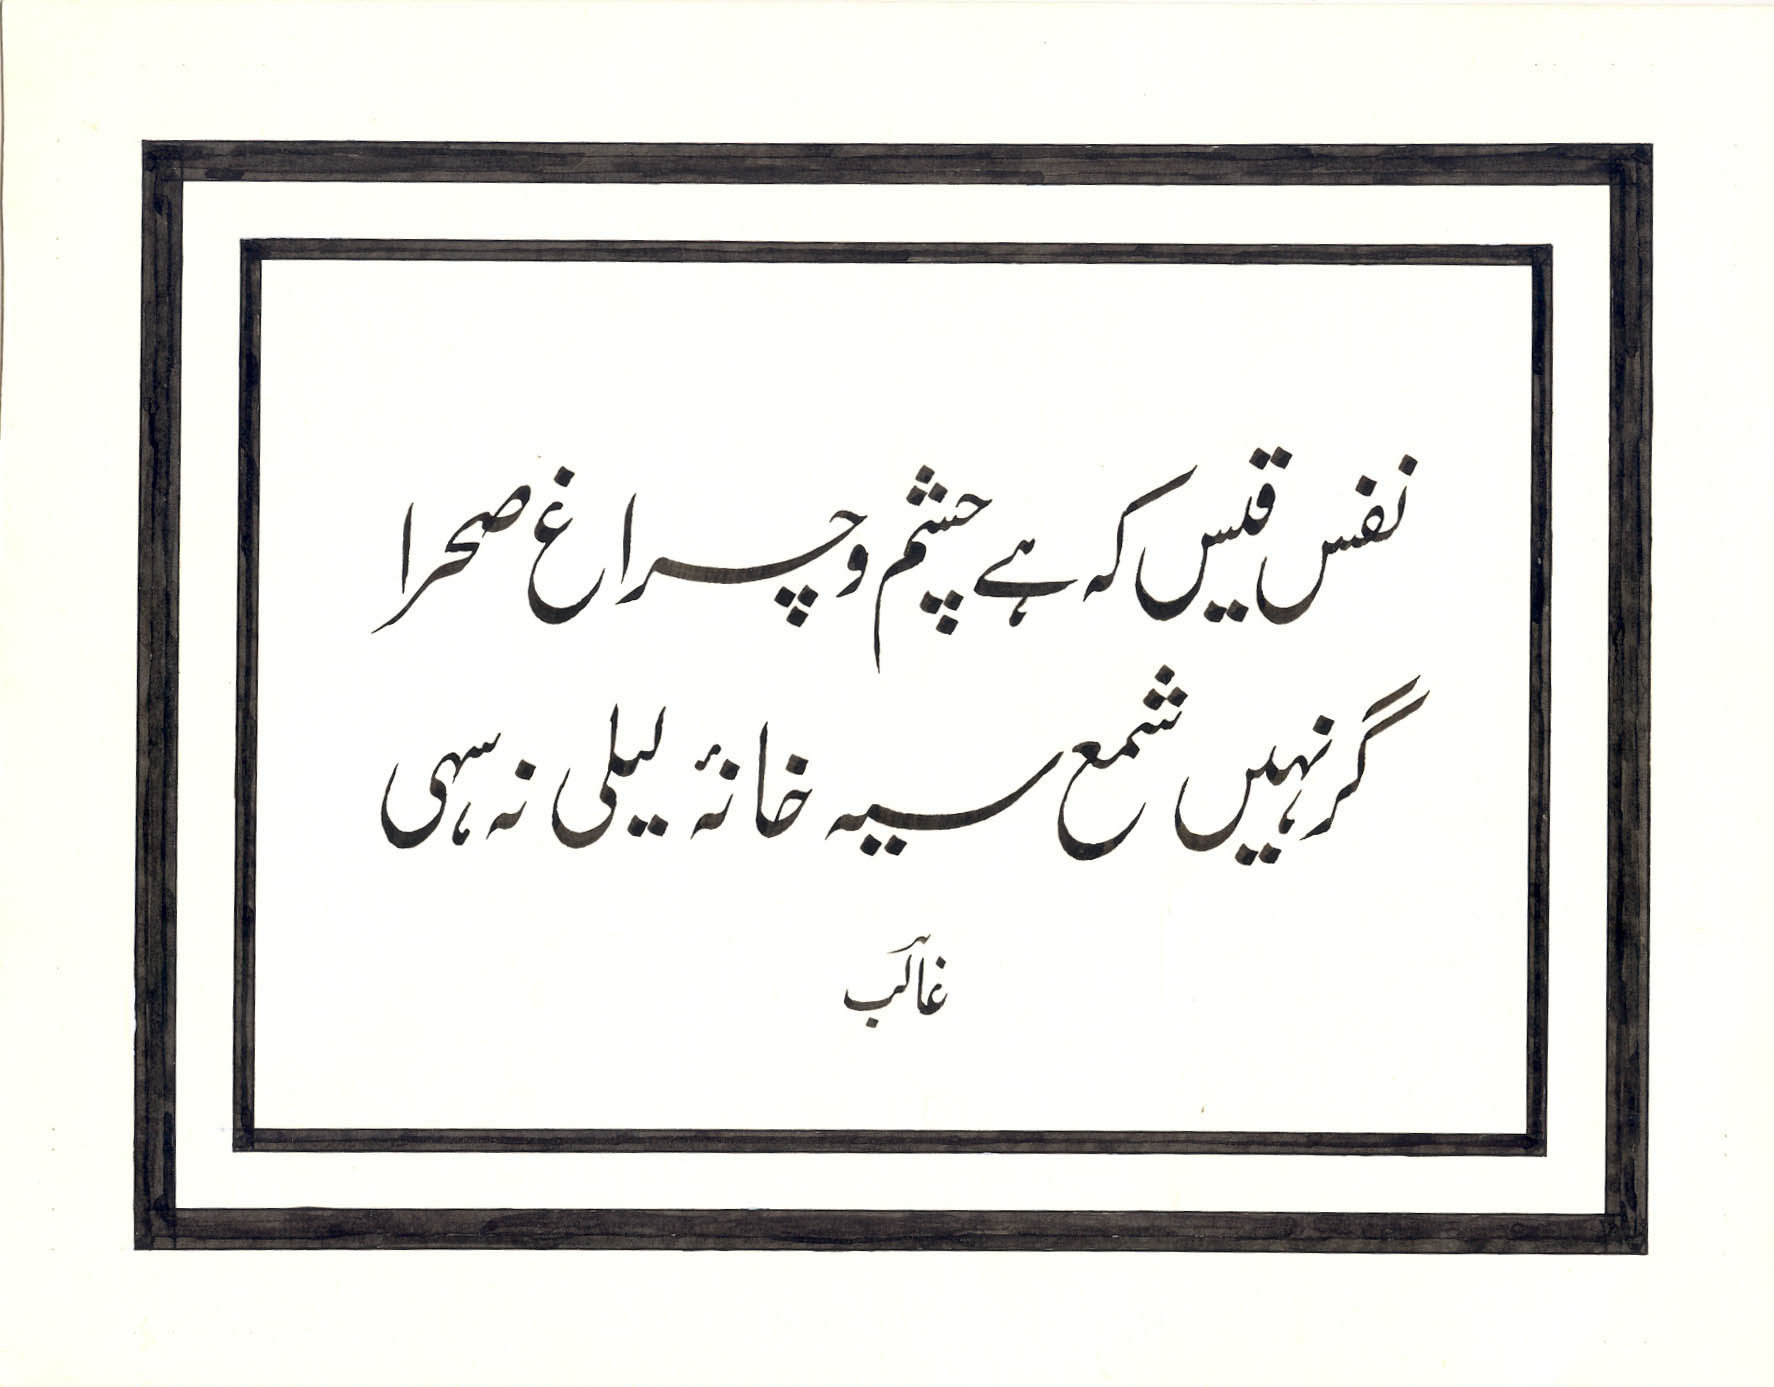 نفس قیس کہ ہے چشم و چراغ صحرا
گر نہیں شمع سیہ خانۂ لیلی نہ سہی
غالب